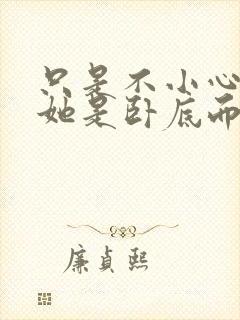 只是不小心
她是卧底而
廉贞熙